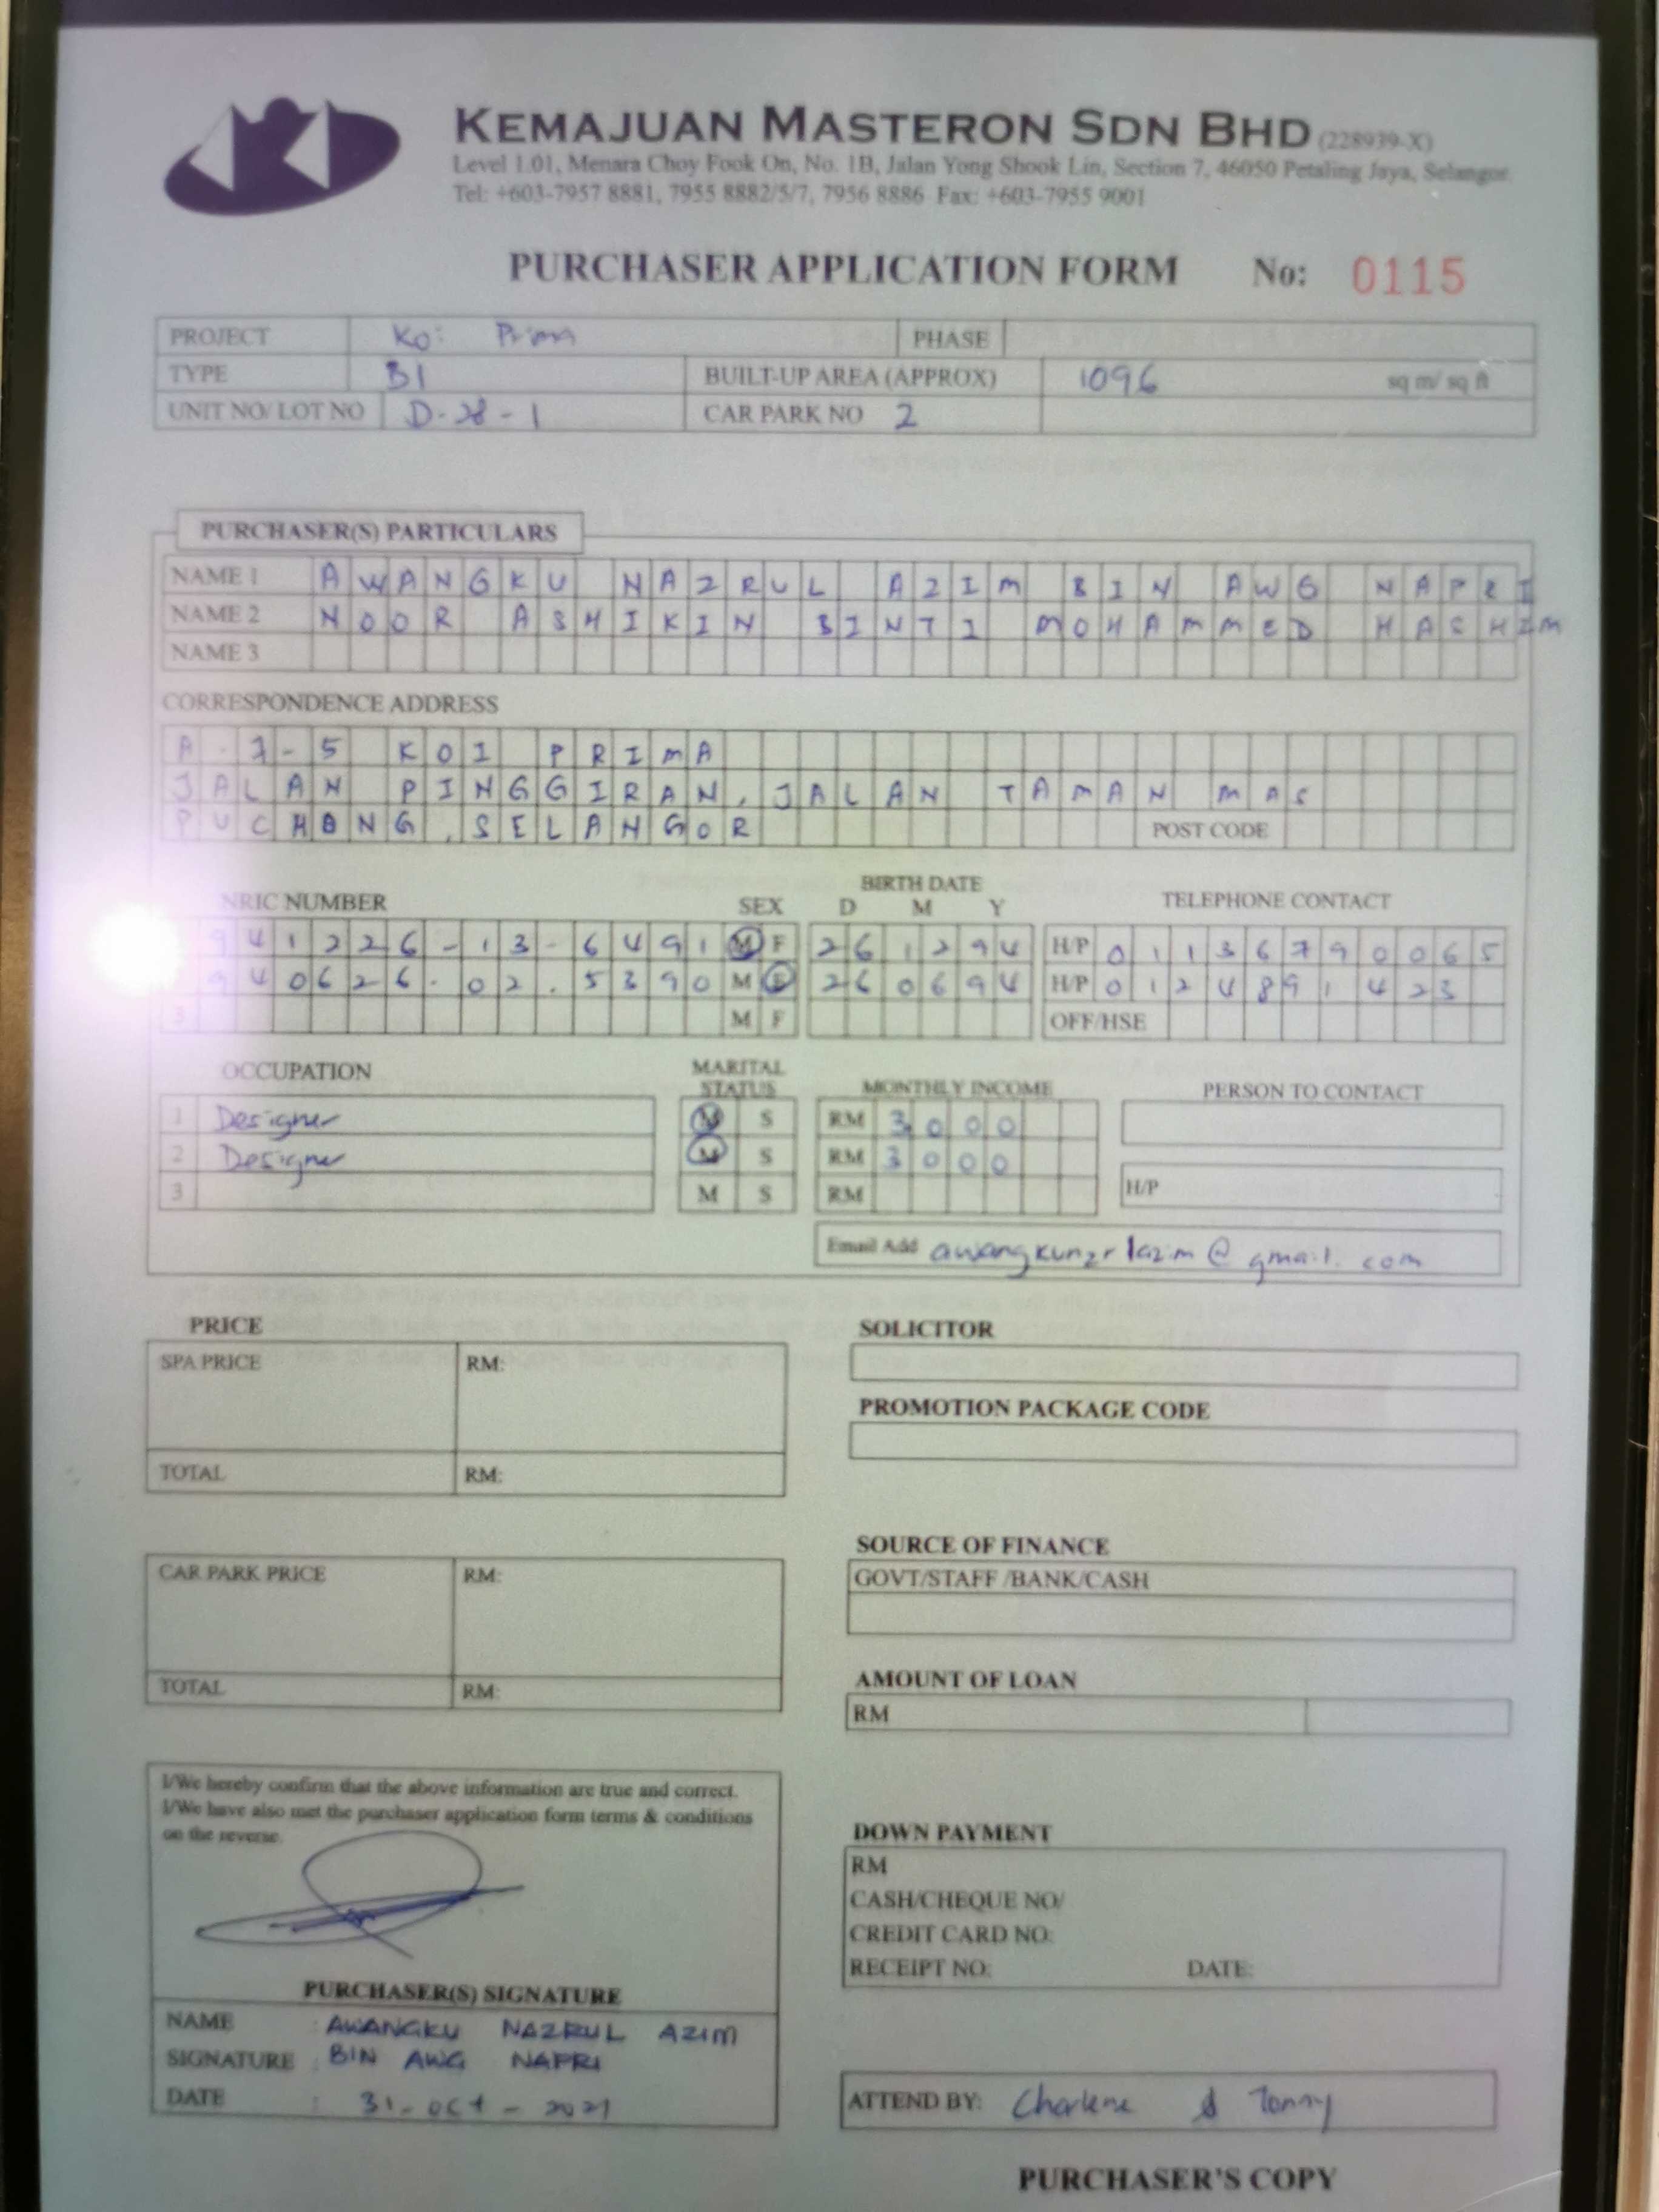 KEMAJUAN MASTERON SDN BHD (228939-X)
Level 1.01, Menara Choy Fook On, No. 1B, Jalan Yong Shook Lin, Section 7, 46050 Petaling Jaya, Selangor.
Tel: +603-7957 8881, 7955 8882/5/7, 7956 8886 Fax: +603-7955 9001
PURCHASER APPLICATION FORM No: 0115
PROJECT Koi Prima PHASE
TYPE B1 BUILT-UP AREA (APPROX) 1096 sq m/ sq ft
UNIT NO/ LOT NO D-28-1 CAR PARK NO 2
PURCHASER(S) PARTICULARS
NAME 1 AWANGKU NAZRUL AZIM BIN AWG NAPRI
NAME 2 NOOR ASHIKIN BINTI MOHAMMED HASHIM
NAME 3
CORRESPONDENCE ADDRESS
A-7-5 KOI PRIMA
JALAN PINGGIRAN, JALAN TAMAN MAS
PUCHONG, SELANGOR POST CODE
BIRTH DATE
NRIC NUMBER SEX D M Y TELEPHONE CONTACT
941226-13-6491 M F 261294 H/P 01136790065
940626-02-5390 M F 260694 H/P 0124891423
3 M F OFF/HSE
OCCUPATION MARITAL STATUS MONTHLY INCOME PERSON TO CONTACT
1 Designer M S RM 3000
2 Designer M S RM 3000
3 M S RM H/P
Email Add awangkunzrlazim@gmail.com
PRICE SOLICITOR
SPA PRICE RM:
PROMOTION PACKAGE CODE
TOTAL RM:
SOURCE OF FINANCE
CAR PARK PRICE RM: GOVT/STAFF /BANK/CASH
AMOUNT OF LOAN
TOTAL RM: RM
I/We hereby confirm that the above information are true and correct.
I/We have also met the purchaser application form terms & conditions
on the reverse.
DOWN PAYMENT
RM
CASH/CHEQUE NO/
CREDIT CARD NO:
RECEIPT NO: DATE:
PURCHASER(S) SIGNATURE
NAME : AWANGKU NAZRUL AZIM
SIGNATURE : BIN AWG NAPRI
DATE : 31-OCT-2021
ATTEND BY: Charlene & Tonny
PURCHASER'S COPY